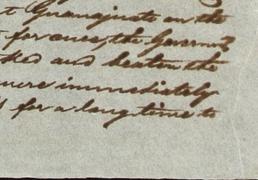 t Guanajuato on the
for ever, the Govern
ked and beaten the
were immediately
for a long time to